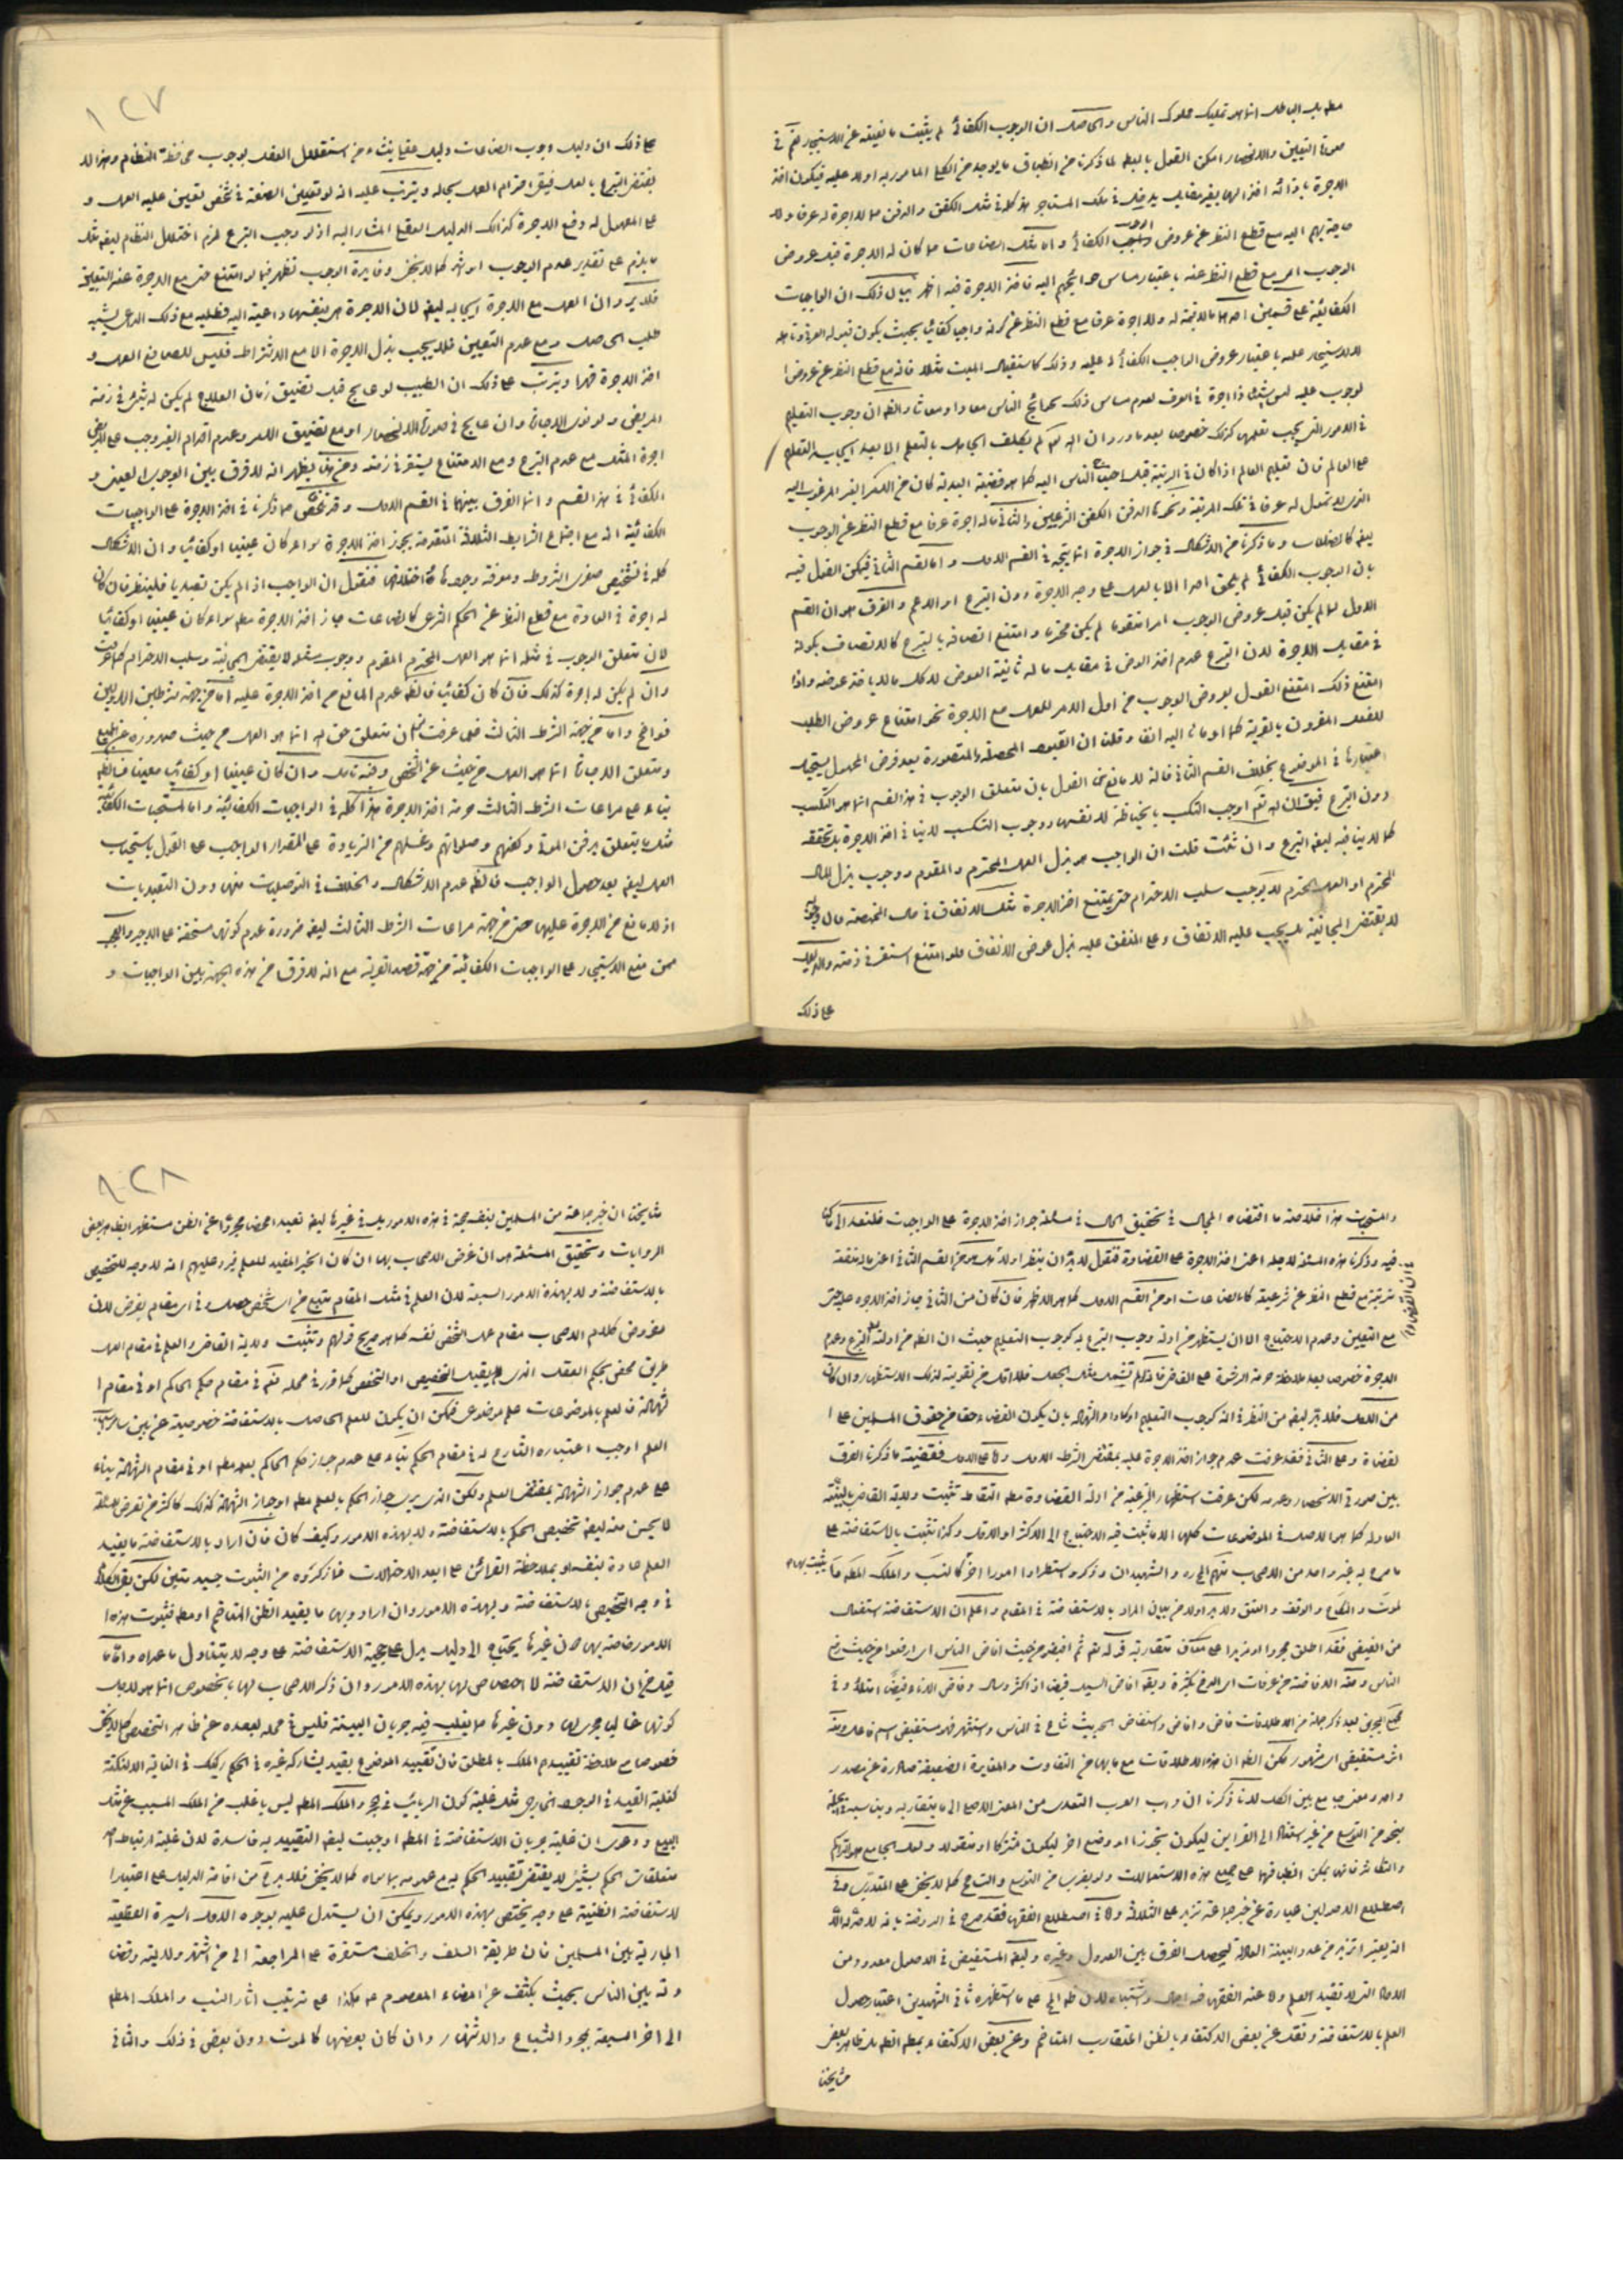 مطو بل الباطل انما هو تمليك مملوك الناس والحاصل ان الوجوب الكفائى لم يثبت ما نعيته عن الاستيجار نعم فى
صورة التعيين والانحصار امكن القول بالبطلان لما ذكرنا من انطباق ما يوجد من الكلى المامور به اولا عليه فيكون اخذ
الاجرة بازائه اخذا لها بغير مقابل يدخل فى ملك المستاجر هذا كله فى مثل الكفن والدفن مما لا اجرة له عرفا ولا
حاجة بهم اليه مع قطع النظر عن عروض الوجوب الكفائى واما مثل الصناعات مما كان له الاجرة قبل عروض
الوجوب اى مع قطع النظر عنه باعتبار مساس حوائجهم اليه فاخذ الاجرة فيه اظهر بيان ذلك ان الواجبات
الكفائية على قسمين احدهما ما لا قيمة له ولا اجرة عرفا مع قطع النظر عن كونه واجبا كفائيا بحيث يكون قبوله
للاستيجار عليه باعتبار عروض الواجب الكفائى له عليه وذلك كاستقبال الميت مثلا فانه مع قطع النظر عن عروض ا
لوجوب عليه ليس شيئا ذا اجرة فى العرف لعدم مساس ذلك بحوائج الناس معادا ومعاشا والظ ان وجوب التعليم
فى الامور التى يجب تعلمها كذلك خصوصا بعد ما ورد ان الله تعم لم يكلف الجاهل بالتعلم الا بعد ايجاب التعليم
على العالم فان تعليم العالم اذا كان فى الرتبة قبل احتياج الناس اليه كما هو قضية البعدية كان من الامر الغير المرغوب اليه
الذى لا تمول له عرفا فى تلك المرتبة ونحوها الدفن الكفن الشرعيين والثانى ما له اجرة عرفا مع قطع النظر عن الوجوب
ايضا كالصناعات وما ذكرنا من الاشكال فى جواز الاجرة انما يتجه فى القسم الاول واما القسم الثانى فيمكن القول فيه
بان الوجوب الكفائى لم يلحق امرا الا بالعمل على وجه الاجرة دون التبرع او الاعم والفرق هو ان القسم
الاول لما لم يكن قبل عروض الوجوب امرا متقوما لم يكن محترما وامتنع اتصافه بالتبرع كالاتصاف بكونه
فى مقابل الاجرة لان التبرع عدم اخذ العوض فى مقابل ما له شانية العوض لا كل ما لا ياخذ عوضه واذا
امتنع ذلك امتنع القول بعروض الوجوب من اول الامر للعمل مع الاجرة نحو امتناع عروض الطلب
للفعل المقرون بالقربة كما اومانا اليه انفا وقلنا ان القيود المحصلة المتصورة بعد فرض المحمول يستحيل
اعتبارها فى الموضوع بخلاف القسم الثانى فانه لا مانع من القول بان متعلق الوجوب فى هذا القسم انما هو التكسب
دون التبرع فيق ان الله تعم اوجب التكسب بالخياطة لا نفسها ووجوب التكسب لا ينافى اخذ الاجرة بل تحققه
كما لا ينافيه ايضا التبرع وان شئت قلت ان الواجب هو بذل العمل المحترم والمقوم ووجوب بذل المال
المحترم او العمل المحترم لا يوجب سلب الاحترام حتى يمتنع اخذ الاجرة مثله الانفاق فى حال المخمصة فان وجوبه
لا يقتضى المجانية بل يجب عليه الانفاق وعلى المنفق عليه بذل عوض الانفاق فلو امتنع استقر فى ذمته والدليل
على ذلك
١٢٧
على ذلك ان دليل وجوب الصناعات دليل عقلى ينشاء من استقلال العقل بوجوب محافظة النظام وهذا لا
يقتضى التبرع بالعمل فيبقى احترام العمل بحاله ويترتب عليه انه لو تعيين الصنعة فى شخص تعين عليه العمل و
على المعمول له دفع الاجرة كذلك الدليل العقلى المشار اليه اذ لو وجب التبرع لزم اختلال النظام ايضا مثل
ما يلزم على تقدير عدم الوجوب او اشد كما لا يخفى وفايدة الوجوب تظهر فيما لو امتنع حتى مع الاجرة عند التعيين
فلا يرد ان العمل مع الاجرة ايجابه ايضا لان الاجرة هى بنفسها داعية اليه فطلبه مع ذلك الداعى يشبه
طلب الحاصل ومع عدم التعيين فلا يجب بذل الاجرة الا مع الاشتراط فليس للصانع العمل و
اخذ الاجرة قهرا ويترتب على ذلك ان الطبيب لو عالج قبل تضيق زمان العلاج لم يكن له شىء فى ذمة
المريض ولو نوى الاجارة وان عالج فى صورة الانحصار او مع تضييق الامر وعدم اقدام الغير وجب على المريض
اجرة المثل مع عدم التبرع ومع الامتناع يستقر فى ذمته ومن هنا يظهر انه لا فرق بين الوجوب العينى و
الكفائى فى هذا القسم وانما الفرق بينهما فى القسم الاول وقد تلخص مما ذكرنا فى اخذ الاجرة على الواجبات
الكفائية انه مع اجتماع الشرايط الثلاثة المتقدمة يجوز اخذ الاجرة سواء كان عينيا او كفائيا وان الاشكال
كله فى تشخيص صغرى الشروط ومعرفة وجودها من اختلالها فنقول ان الواجب اذا لم يكن تعبديا فلينظر فان كان
له اجرة فى العادة مع قطع النظر عن الحكم الشرعى كالصناعات جاز اخذ الاجرة مطلقا سواء كان عينيا او كفائيا
لان متعلق الوجوب فى مثله انما هو العمل المحترم المقوم ووجوب مثله لا يقتضى المجانية وسلب الاحترام كما عرفت
وان لم يكن له اجرة كذلك فان كان كفائيا فالظ عدم المانع من اخذ الاجرة عليه اما من جهة شرطين الاولين
فواضح واما من جهة الشرط الثالث فلما عرفت من ان متعلق حق الله انما هو العمل من حيث صدوره عن الجميع
ومتعلق الاجارة انما هو العمل من حيث عن الشخص وفيه تامل وان كان عينيا او كفائيا معينا فالظ
بناء على مراعات الشرط الثالث حرمة اخذ الاجرة هذا كله فى الواجبات الكفائية واما المستحبات الكفائية
مثل ما يتعلق بدفن الموتى وكفنهم وصلواتهم وغسلهم من الزيادة على المقدار الواجب على القول باستحباب
العمل ايضا بعد حصول الواجب فالظ عدم الاشكال والخلاف فى التوصليات منها دون التعبديات
اذ لا مانع من الاجرة عليها حتى من جهة مراعات الشرط الثالث ايضا ضرورة عدم كونها مستحقة على الاجير والعجب
ممن منع الاستيجار على الواجبات الكفائية من جهة قصد القربة مع انه لا فرق من هذه الجهة بين الواجبات و
والمستحبات هذا خلاصة ما اقتضاه المجال فى تحقيق الحال فى مسئلة جواز اخذ الاجرة على الواجبات فلنعد الى ما كنا
فيه وذكرنا هذه المسئلة لاجله اعنى اخذ الاجرة على القضاوة فنقول لا بد ان ينظر اولا هل هو من القسم الثانى اعنى ما له منفعة
شرعية مع قطع النظر عن شرعيته كالصناعات او من القسم الاول كما هو الاظهر فان كان من الثانى جاز اخذ الاجرة عليه حتى
مع التعيين وعدم الاحتياج الا ان يستظهر من ادلته وجوب التبرع به كوجوب التعليم حيث ان الظ من ادلته التبرع وعدم
الاجرة خصوصا بعد ملاحظة حرمة الرشوة على القاضى فانه لو لم تشمل مثل الجعل فلا اقل من تقويته لذلك الاستظهار وان كان
من الاول فلا بد ايضا من النظر فى انه كوجوب التعليم او كاداء الشهادة بان يكون القضاء حقا من حقوق المسلمين على ا
لقضاة وعلى الثانى فقد عرفت عدم جواز اخذ الاجرة عليه بمقتضى الشرط الاول واما على الاول فقضية ما ذكرنا الفرق
بين صورتى الانحصار وعدمه لكن عرفت استظهار الشرعية من ادلة القضاوة مطلقا التقاط تثبت ولاية القاضى بالبينة
العادلة كما هو الاصل فى الموضوعات كلها الا ما ثبت فيه الاحتياج الى الاكثر او الاقل وكذا تثبت بالاستفاضة على
ما صرح به غير واحد من الاصحاب منهم المحقق والشهيدان وذكروا استطرادا امورا اخر كالنسب والملك المطلق
لموت والنكاح والوقف والعتق ولا بد اولا من بيان المراد بالاستفاضة فى المقام واعلم ان الاستفاضة استفعال
من الفيض فقد اطلق مجردا او مزيدا على معان متقاربة قوله تعم ثم افيضوا من حيث افاض الناس اى ارفعوا من حيث رفع
الناس ومنه الافاضة من عرفات اى الدفع بكثرة ويقال افاض السيل فيضا اذا كثر وسال وفاض الاناء فيضا امتلأ وفى
مجمع البحرين بعد ذكر جملة من الاطلاقات فاض وافاض واستفاض الحديث شاع فى الناس وانتشر فهو مستفيض اسم فاعل ومنه
اثر مستفيض اى مشهور لكن الظ ان هذه الاطلاقات مع ما بها من التفاوت والمغايرة الضعيفة صادرة عن مصدر
واحد ومعنى جامع بين الكل لانا ذكرنا ان داب العرب التعدى من المعنى الاصلى الى ما يتقاربه ويناسبه فى الجملة
بنحو من التوسع من غير استناد الى القراين ليكون تجوزا او وضع اخر ليكون مشتركا او منقولا ولعل الجامع هو التراكم
والتكاثر فانها يمكن انطباقها على جميع هذه الاستعمالات ولو بضرب من التوسع والتسامح كما لا يخفى على المتدرب وفى
اصطلاح الاصولين عبارة عن خبر جماعة تزيد على الثلاثة واما فى اصطلاح الفقهاء فقد صرح فى الروضة بانه لا بد
ان يعتبر ازيد من عدد البينة العادلة ليحصل الفرق بين العدول وغيره ولعل المستفيض فى الاصول معدود من
الاحاد التى لا تفيد العلم واما عند الفقهاء فيه اجمال واشتباه لان ظ المحكى على ما استظهره ثانى الشهيدين اعتبار حصول
العلم بالاستفاضة ونقل عن بعض الاكتفاء بالظن المتقارب المتاخم وعن بعض الاكتفاء بمطلق الظن بل ظاهر بعض
مشايخنا
١٢٨
مشايخنا ان خبر جماعة من المسلمين بنفسه حجة فى هذه الامور بل فى غيرها ايضا تعبدا محضا مجردا عن الظن مستظهرا بظاهر بعض
الروايات وتحقيق المسئلة هو ان غرض الاصحاب بها ان كان الخبر المفيد للعلم فيرد عليهم انه لا وجه للتخصيص
بالاستفاضة ولا بهذه الامور السبعة لان العلم فى مثل المقام متبع من اى شخص حصل وفى اى مقام يفرض لان
مفروض كلام الاصحاب مقام عمل الشخص نفسه كما هو صريح قولهم وتثبت ولاية القاضى والعلم فى مقام العمل
طريق محض بحكم العقل الذى لا يقبل التخصيص او التخصص كما قرر فى محله نعم فى مقام حكم الحاكم او فى مقام ا
لشهادة فالعلم بالموضوعات علم موضوعى فيمكن ان يكون للعلم الحاصل بالاستفاضة خصوصية من بين ساير اسباب
العلم اوجب اعتباره الشارع له فى مقام الحكم بناء على عدم جواز حكم الحاكم بعلمه مطلقا او فى مقام الشهادة بناء
على عدم جواز الشهادة بمقتضى العلم ولكن الذى يرى جواز الحكم بالعلم مطلقا او جواز الشهادة كذلك كاكثر من تعرض للمسئلة
لا يحسن منه ايضا تخصيص الحكم بالاستفاضة ولا بهذه الامور وكيف كان فان اراد بالاستفاضة ما يفيد
العلم عادة بنفسه او بملاحظة القرائن على ابعد الاحتمالات فما ذكروه من الثبوت جيد متين لكن يبقى الكلام
فى وجه التخصيص بالاستفاضة وبهذه الامور وان ارادوا بها ما يفيد الظن المتاخم او مطلقا فثبوت هذه ا
لامور خاصة بها دون غيرها يحتاج الى دليل يدل على حجية الاستفاضة على وجه لا يتناول ما عداه واما ما
قيل من ان الاستفاضة لا اختصاص لها بهذه الامور وان ذكر الاصحاب لها بخصوص انما هو لاجل
كونها غالبا مجرى لها دون غيرها مما يغلب فيه جريان البينة فليس فى محله لبعده عن ظاهر التخصيص كما لا يخفى
خصوصا مع ملاحظة تقييدهم الملك بالمطلق فان تقييد الموضوع بقيد يشاركه غيره فى الحكم ركيك فى الغاية الا لنكتة
كغلبة القيد فى الوجود الخارجى مثل غلبة كون الربائب فى الحجر والملك المطلق ليس باغلب من الملك المسبب عن مثل
البيع ودعوى ان غلبة جريان الاستفاضة فى المطلق اوجبت ايضا التقييد به فاسدة لان غلبة ارتباط احد
متعلقات الحكم بشىء لا يقتضى تقييد الحكم به مع عدمه بما سواه كما لا يخفى فلا بد من اقامة الدليل على اعتبار ا
لاستفاضة الظنية على وجه يختص بهذه الامور ويمكن ان يستدل عليه بوجوه الاول السيرة القطعية
الجارية بين المسلمين فان طريقة السلف والخلف مستقرة على المراجعة الى من اشتهر ولايته وقضا
وته بين الناس بحيث يكشف عن امضاء المعصوم عم وهكذا على ترتيب اثار النسب والملك المطلق
الى اخر السبعة بمجرد الشياع والاشتهار وان كان بعضها كالموت دون بعض فى ذلك والثانى